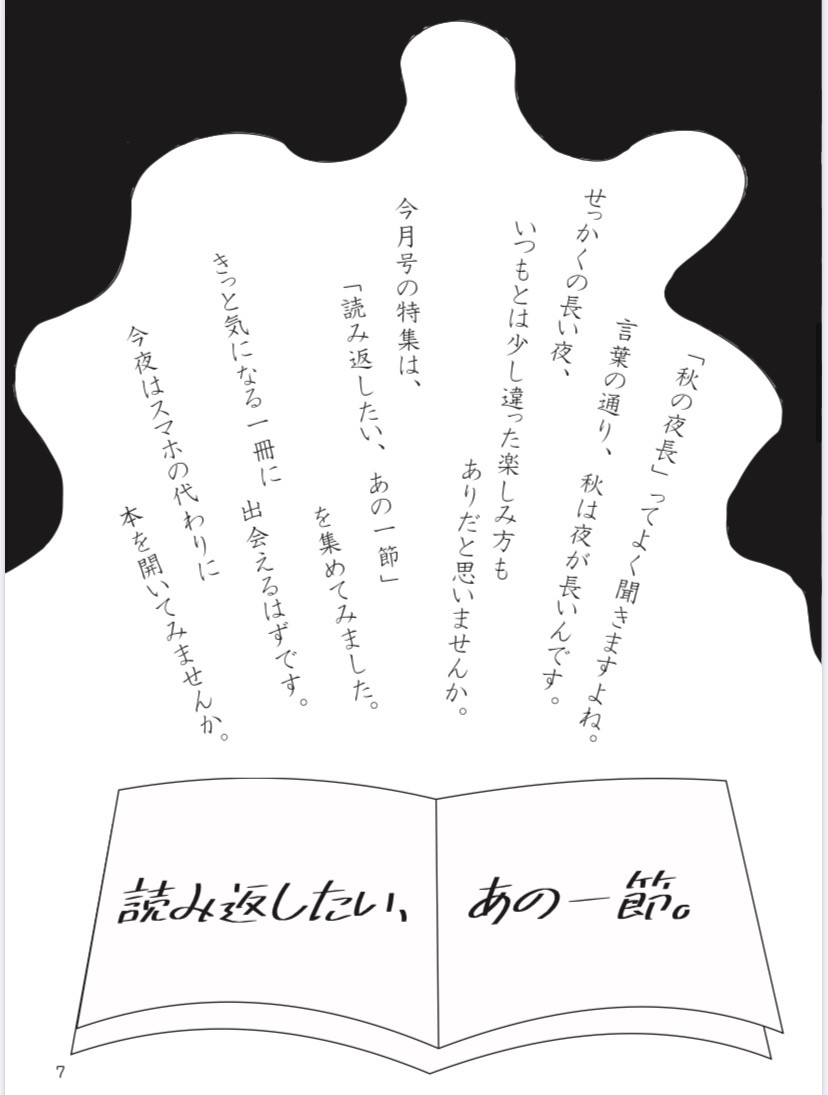 「秋の夜長」ってよく聞きますよね。
言葉の通り、秋は夜が長いんです。
せっかくの長い夜、
いつもとは少し違った楽しみ方も
ありだと思いませんか。
今月号の特集は、
「読み返したい、あの一節」
を集めてみました。
きっと気になる一冊に
出会えるはずです。
今夜はスマホの代わりに
本を開いてみませんか。
読み返したい、あの一節。
7